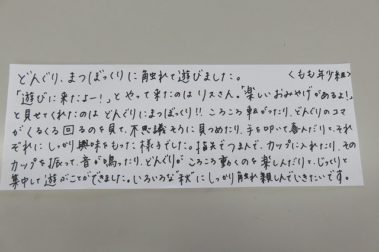 どんぐり、まつぼっくりに触れて遊びました。 〈もも年少組〉
「遊びに来たよー！」とやって来たのはリスさん。「楽しいおみやげがあるよ！」
と見せてくれたのはどんぐりにまつぼっくり!! ころころ転がったり、どんぐりのコマ
がくるくる回るのを見て、不思議そうに見つめたり、手を叩いて喜んだりと、それ
ぞれにしっかり興味をもった様子でした。指先でつまんで、カップに入れたり、その
カップを振って、音が鳴ったり、どんぐりがころころ動くのを楽しんだりと、じっくりと
集中して遊ぶことができました。いろいろな"秋"にしっかり触れ親しんでいきたいです。